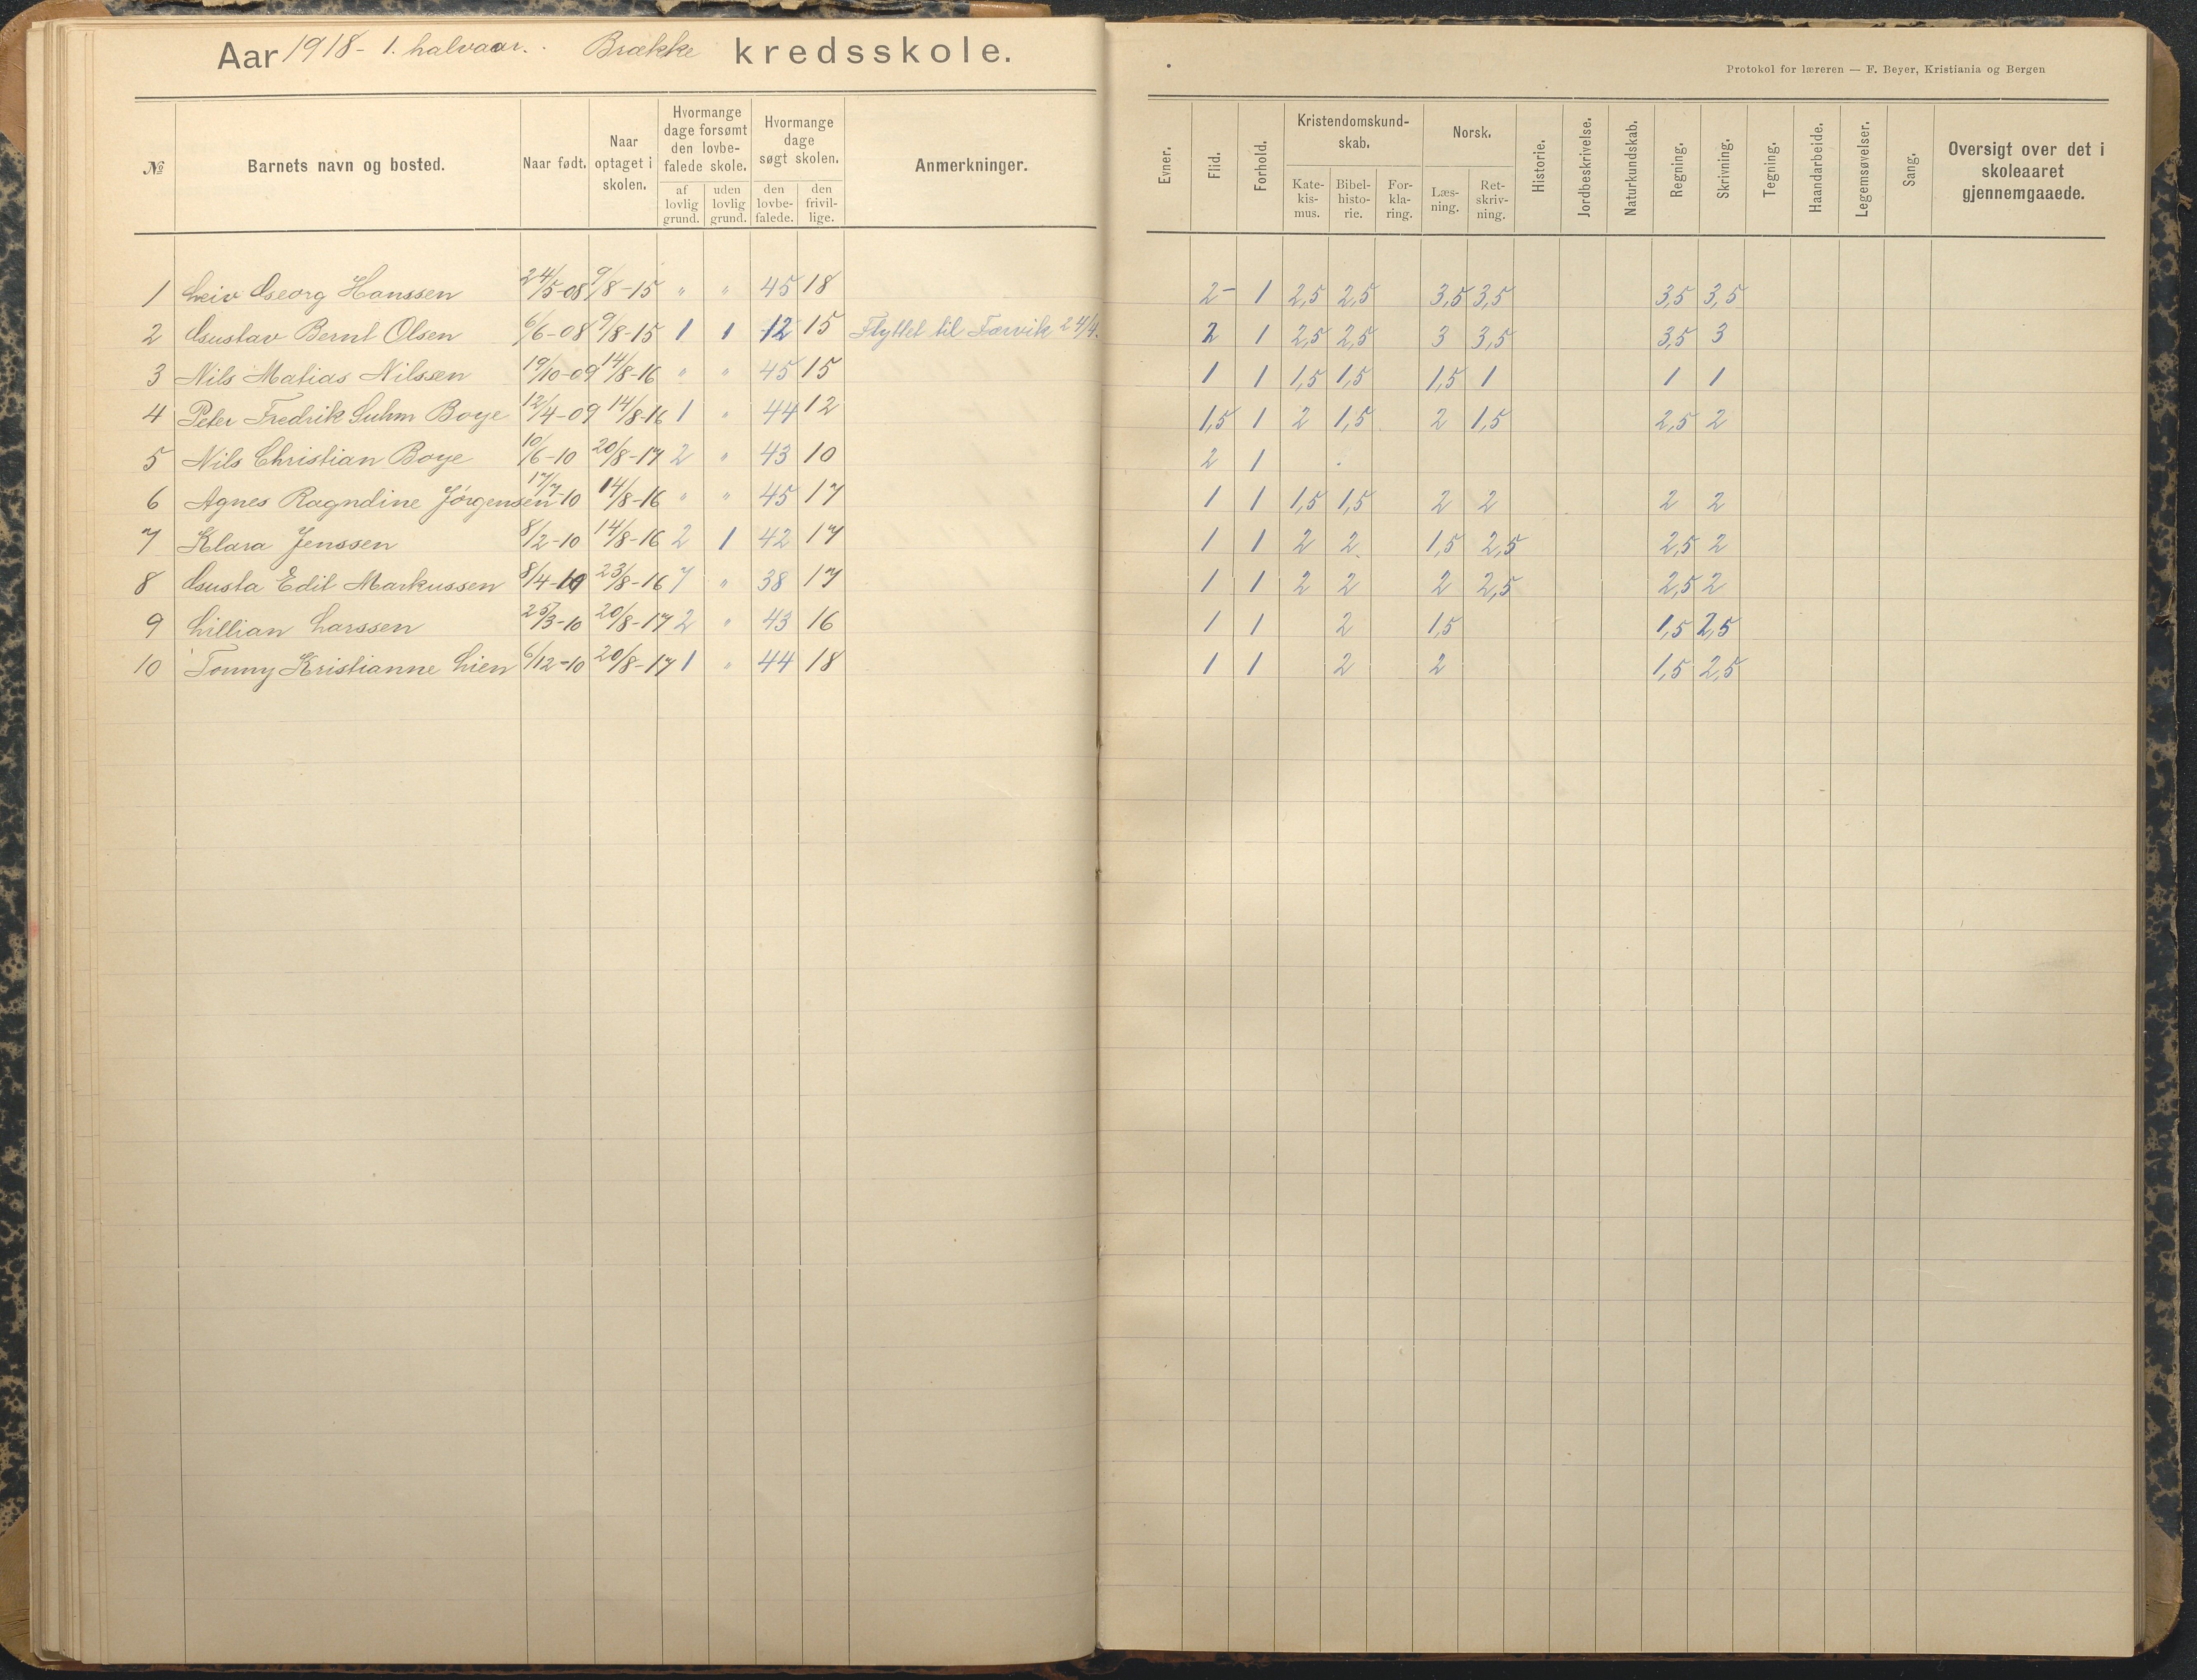 Aar 1918 - 1. halvaar. Brække kredsskole.
Protokol for læreren — F. Beyer, Kristiania og Bergen
№ Barnets navn og bosted. Naar født. Naar optaget i skolen. Hvormange dage forsømt den lovbefalede skole. af lovlig grund. uden lovlig grund. Hvormange dage søgt skolen. den lovbefalede. den frivillige. Anmerkninger. Evner. Flid. Forhold. Kristendomskundskab. Katekismus. Bibelhistorie. Forklaring. Norsk. Læsning. Retskrivning. Historie. Jordbeskrivelse. Naturkundskab. Regning. Skrivning. Tegning. Haandarbeide. Legemsøvelser. Sang. Oversigt over det i skoleaaret gjennemgaaede.
1 Leiv Georg Hanssen 24/5-08 9/8-15 " " 45 18 2- 1 2,5 2,5 3,5 3,5 3,5 3,5
2 Gustav Bernt Olsen 6/6-08 9/8-15 1 1 12 15 Flyttet til Færvik 24/4. 2 1 2,5 2,5 3 3,5 3,5 3
3 Nils Matias Nilssen 19/10-09 14/8-16 " " 45 15 1 1 1,5 1,5 1,5 1 1 1
4 Peter Fredrik Suhm Boye 12/4-09 14/8-16 1 " 44 12 1,5 1 2 1,5 2 1,5 2,5 2
5 Nils Christian Boye 10/6-10 20/8-17 2 " 43 10 2 1
6 Agnes Ragndine Jørgensen 17/7-10 14/8-16 " " 45 17 1 1 1,5 1,5 2 2 2 2
7 Klara Jenssen 8/2-10 14/8-16 2 1 42 17 1 1 2 2 1,5 2,5 2,5 2
8 Gusta Edit Markussen 8/4-10 23/8-16 7 " 38 17 1 1 2 2 2 2,5 2,5 2
9 Lillian Larssen 25/3-10 20/8-17 2 " 43 16 1 1 2 1,5 1,5 2,5
10 Tonny Kristianne Lien 6/12-10 20/8-17 1 " 44 18 1 1 2 2 1,5 2,5